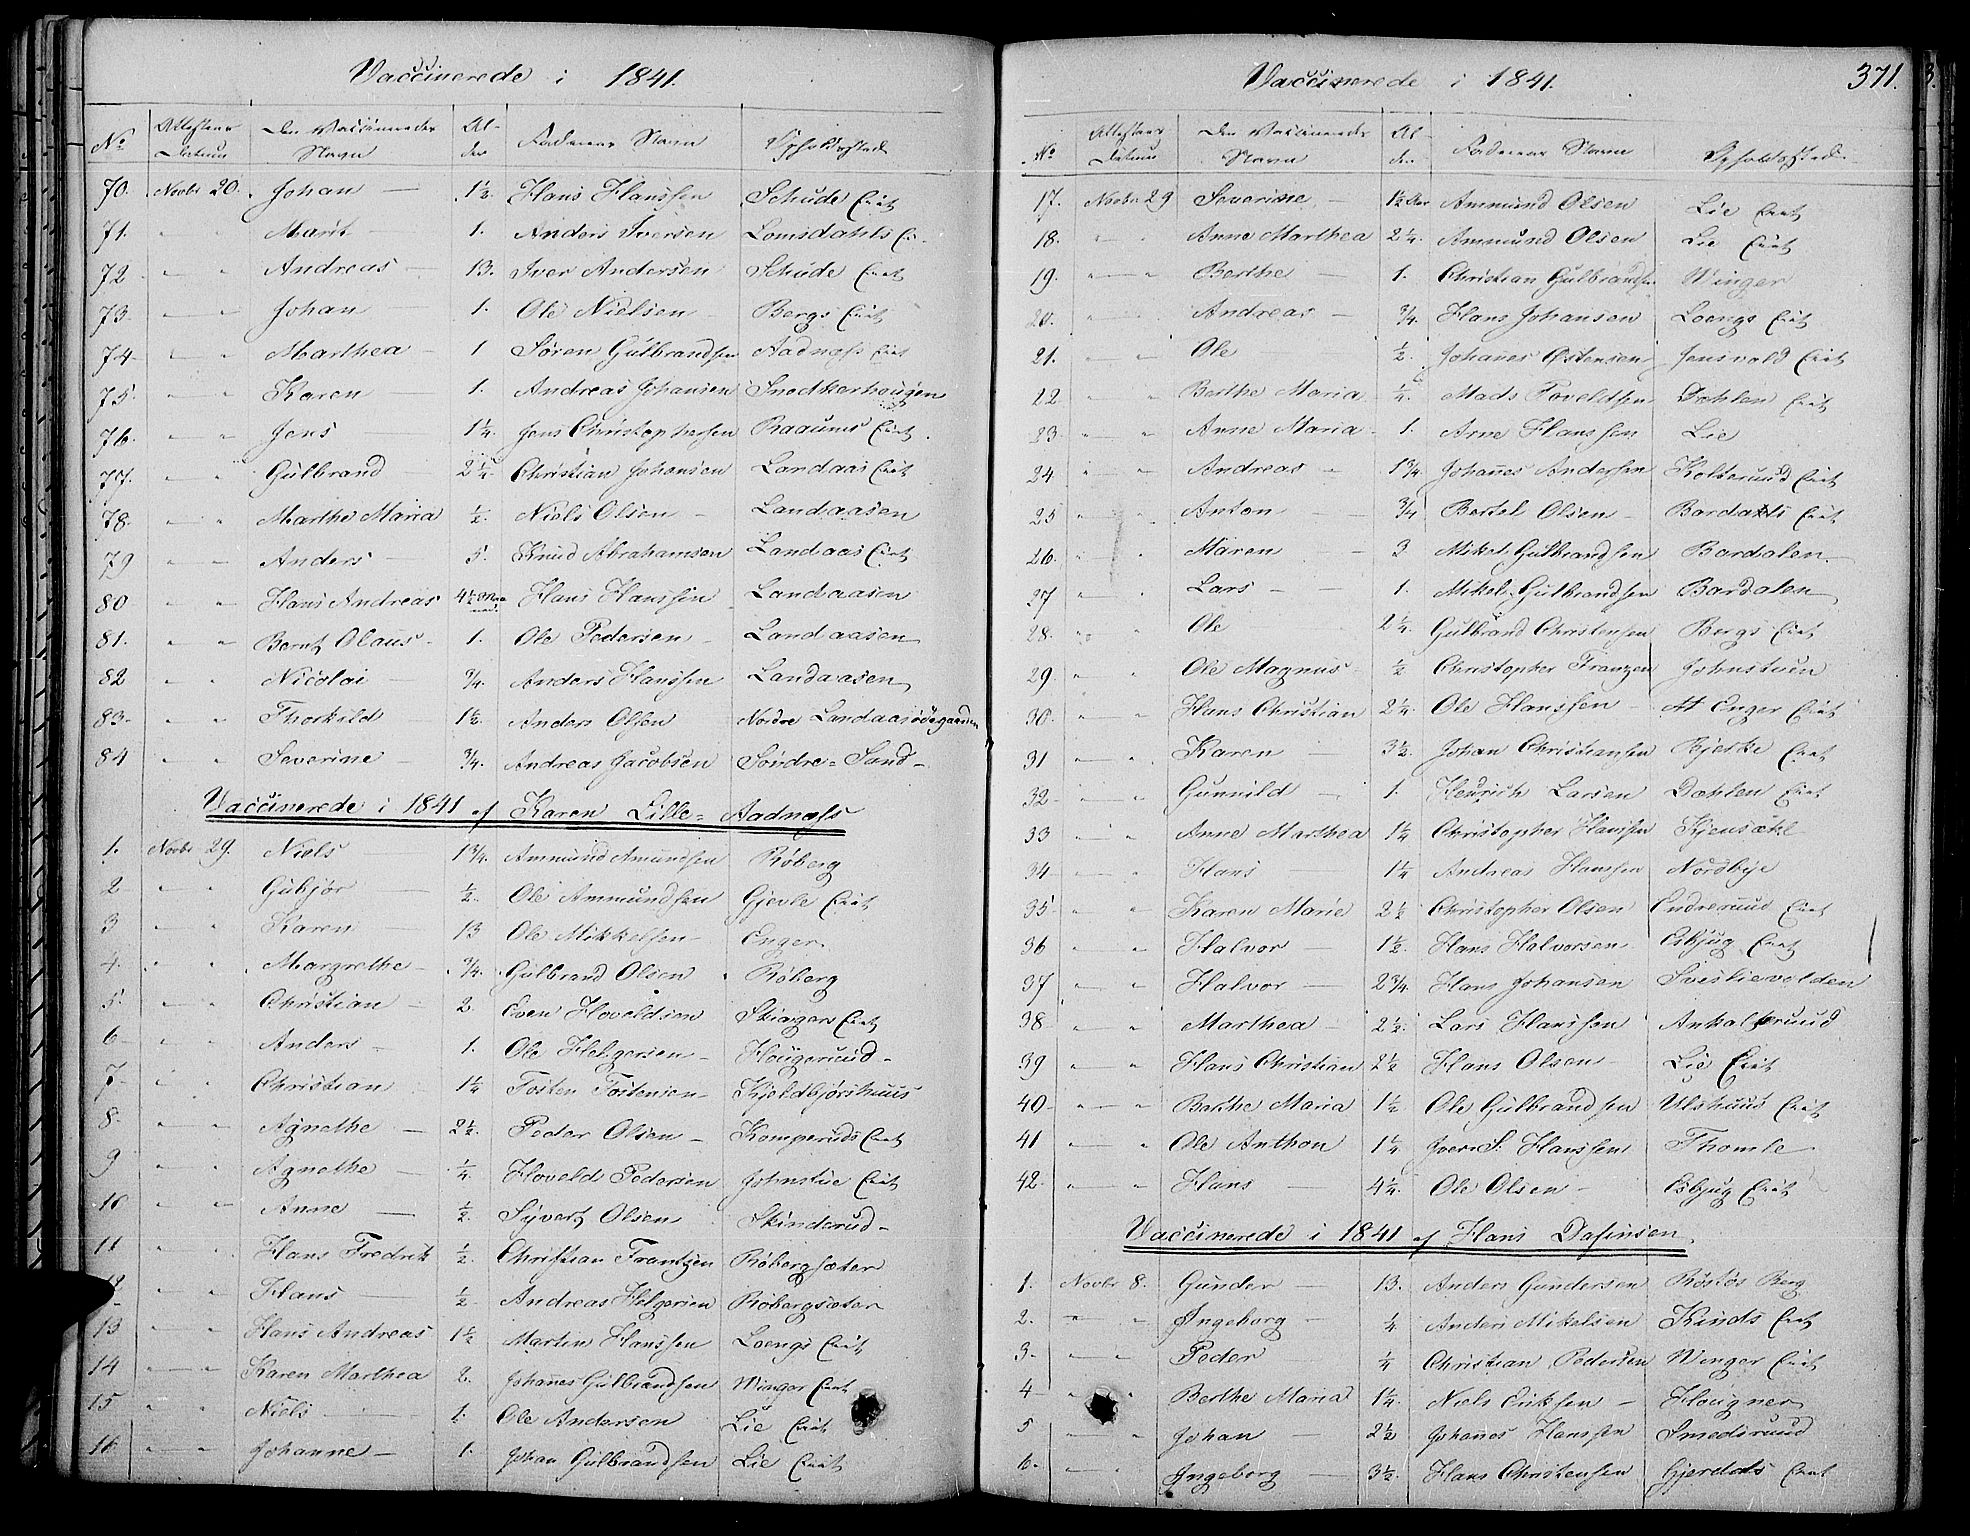 Vaccinerede i 1841.
No Attestens Datum Den Vaccineredes Navn Alder Faderens Navn Opholdssted
70. Novbr 20. Johan — 1½. Hans Hanssen Schüde Eiet
71. " " Marit — 1. Anders Iversen Lomsdahls Ei-
72 " " Andreas — 13. Iver Andersen Schüde Eiet
73. " " Johan — 1. Ole Nielsen Bergs Eiet
74 " " Marthea — 1 Søren Gülbrandsen Aadnæss Eiet
75. " " Karen — 1. Andreas Johansen Snedkerhougen
76. " " Jens — 1¼. Jens Christophersen Raaums Eiet
77. " " Gülbrand 2¼. Christian Johansen Landaas Eiet
78. " " Marthe Maria ½. Niels Olsen — Landaasen
79 " " Anders — 5. Knud Abrahamsen Landaas Eiet
80 " " Hans Andreas 4½ Hans Hanssen Landaasen
81. " " Bernt Olaus — 1. Ole Pedersen — Landaasen
82 " " Nicolai — ¾. Anders Hanssen Landaasen
83. " " Thorkild — 1½. Anders Olsen Nordre Landaasødegaarden
84 " " Severine — ¾. Andreas Jacobsen Søndre = Sand —
Vaccinerede i 1841 af Karen Lille = Aadnæss
1. Novbr 29. Niels 1¾. Ammund Amundsen Røberg
2 " " Gubjør — ½. Ole Ammundsen Gjevle Eiet
3 " " Karen — 13 Ole Mikkelsen — Enger
4. " " Margrethe — ¾. Gülbrand Olsen Røberg
5. " " Christian — 2. Even Hoveldsen Skinger Eiet
6 " " Anders — 1. Ole Helgersen — Hougerud —
7 " " Christian 1¼ Tosten Tostensen — Kjoldbjørshuus
8. " " Agnethe — 2½. Peder Olsen — Komperuds Eiet
9 " " Agnethe — ¼. Hoveld Pedersen Johnstue Eiet
10 " " Anne — ½. Syvert Olsen Skinderud —
11 " " Hans Fredrik ½. Christian Frantzen Røbergsæter
12 " " Hans — ½. Andreas Helgersen Røbergsæter
13 " " Hans Andreas 1½ Martin Hanssen Loengs Eiet
14 " " Karen Marthea 2. Johannes Gülbrandsen Winger Eiet
15 " " Niels — 1. Ole Andersen Lie Eiet
16 " " Johanne — 1. Johan Gülbrandsen Lie Eiet
Vaccinerede i 1841. 371.
No Attestens Datum Den Vaccineredes Navn Alder Faderens Navn Opholdssted
17. Novbr 29 Severine — 1½ Aar Ammund Olsen Lie Eiet
18. " " Anne Marthea 2¼. Ammund Olsen Lie Eiet
19. " " Berthe — 1. Christian Gülbrandsen Winger
20. " " Andreas — ¾. Hans Johansen Loengs Eiet
21. " " Ole ½. Johanes Østensen Jensvold Eiet
22 " " Berthe Maria ¼. Mads Poveldsen Dæhlen Eiet
23 " " Anne Maria 1. Arne Hanssen Lie
24 " " Andreas — 1¾. Johannes Andersen Kolterud Eiet
25 " " Anton — ¾ Bertel Olsen — Bardals Eiet
26. " " Maren — 3 Mikel Gülbrandsen Bardalen
27 " " Lars — 1. Mikel Gülbrandsen Bardalen
28. " " Ole 2¼. Gülbrand Christensen Bergs Eiet
29. " " Ole Magnus — ½ Christopher Frantzen Johnstuen
30. " " Hans Christian 2¼. Ole Hanssen — At Enger Eiet
31 " " Karen — 3½. Johan Christiansen Bjerke Eiet
32 " " Gunnild — 1. Hendrich Larsen Dæhlen Eiet
33 " " Anne Marthea 1¼ Christopher Hanssen Kjensæhl
34 " " Hans — 1¼ Andreas Hanssen Nordbye
35. " " Karen Marie 2½ Christopher Olsen Endrerud Eiet
36 " " Halvor — 1½. Hans Halvorsen Esbjug Eiet
37 " " Halvor — 2¾. Hans Johansen Sveslievolden
38. " " Marthea — 2½. Lars Hanssen Ankalsrud
39 " " Hans Christian 2½ Hans Olsen — Lie Eiet
40 " " Berthe Maria 1½. Ole Gülbrandsen Ulshuus Eiet
41 " " Ole Anthon 1¼. Iver S. Hanssen Thomle
42. " " Hans — 4¼. Ole Olsen — Esbjug Eiet
Vaccinerede i 1841 af Hans Dafinsen
1. Novbr 8. Gunder — 13. Anders Gundersen Røstøs Berg
2. " " Ingeborg — ¼ Anders Mikelsen Kinds Eiet
3. " " Peder ¼ Christian Pedersen Winger Eiet
4 " " Berthe Maria 1¼. Niels Eriksen — Hougner
5 " " Johan — 2½ Johannes Hanssen Smedsrud
6. " " Ingeborg — 3½. Hans Christensen Gjerdals Eiet